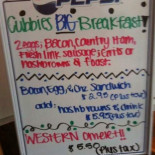 PEPSI
Cubbies BIG Breakfast!
2 eggs, Bacon, Country Ham,
Fresh link sausage, Grits or
hashbrowns & toast
Bacon, Egg, & Che. Sandwich
$2.95 (plus tax)
add: hashbrowns & drink
$5.95 (plus tax)
WESTERN Omelet!!
$5.50 (plus tax)